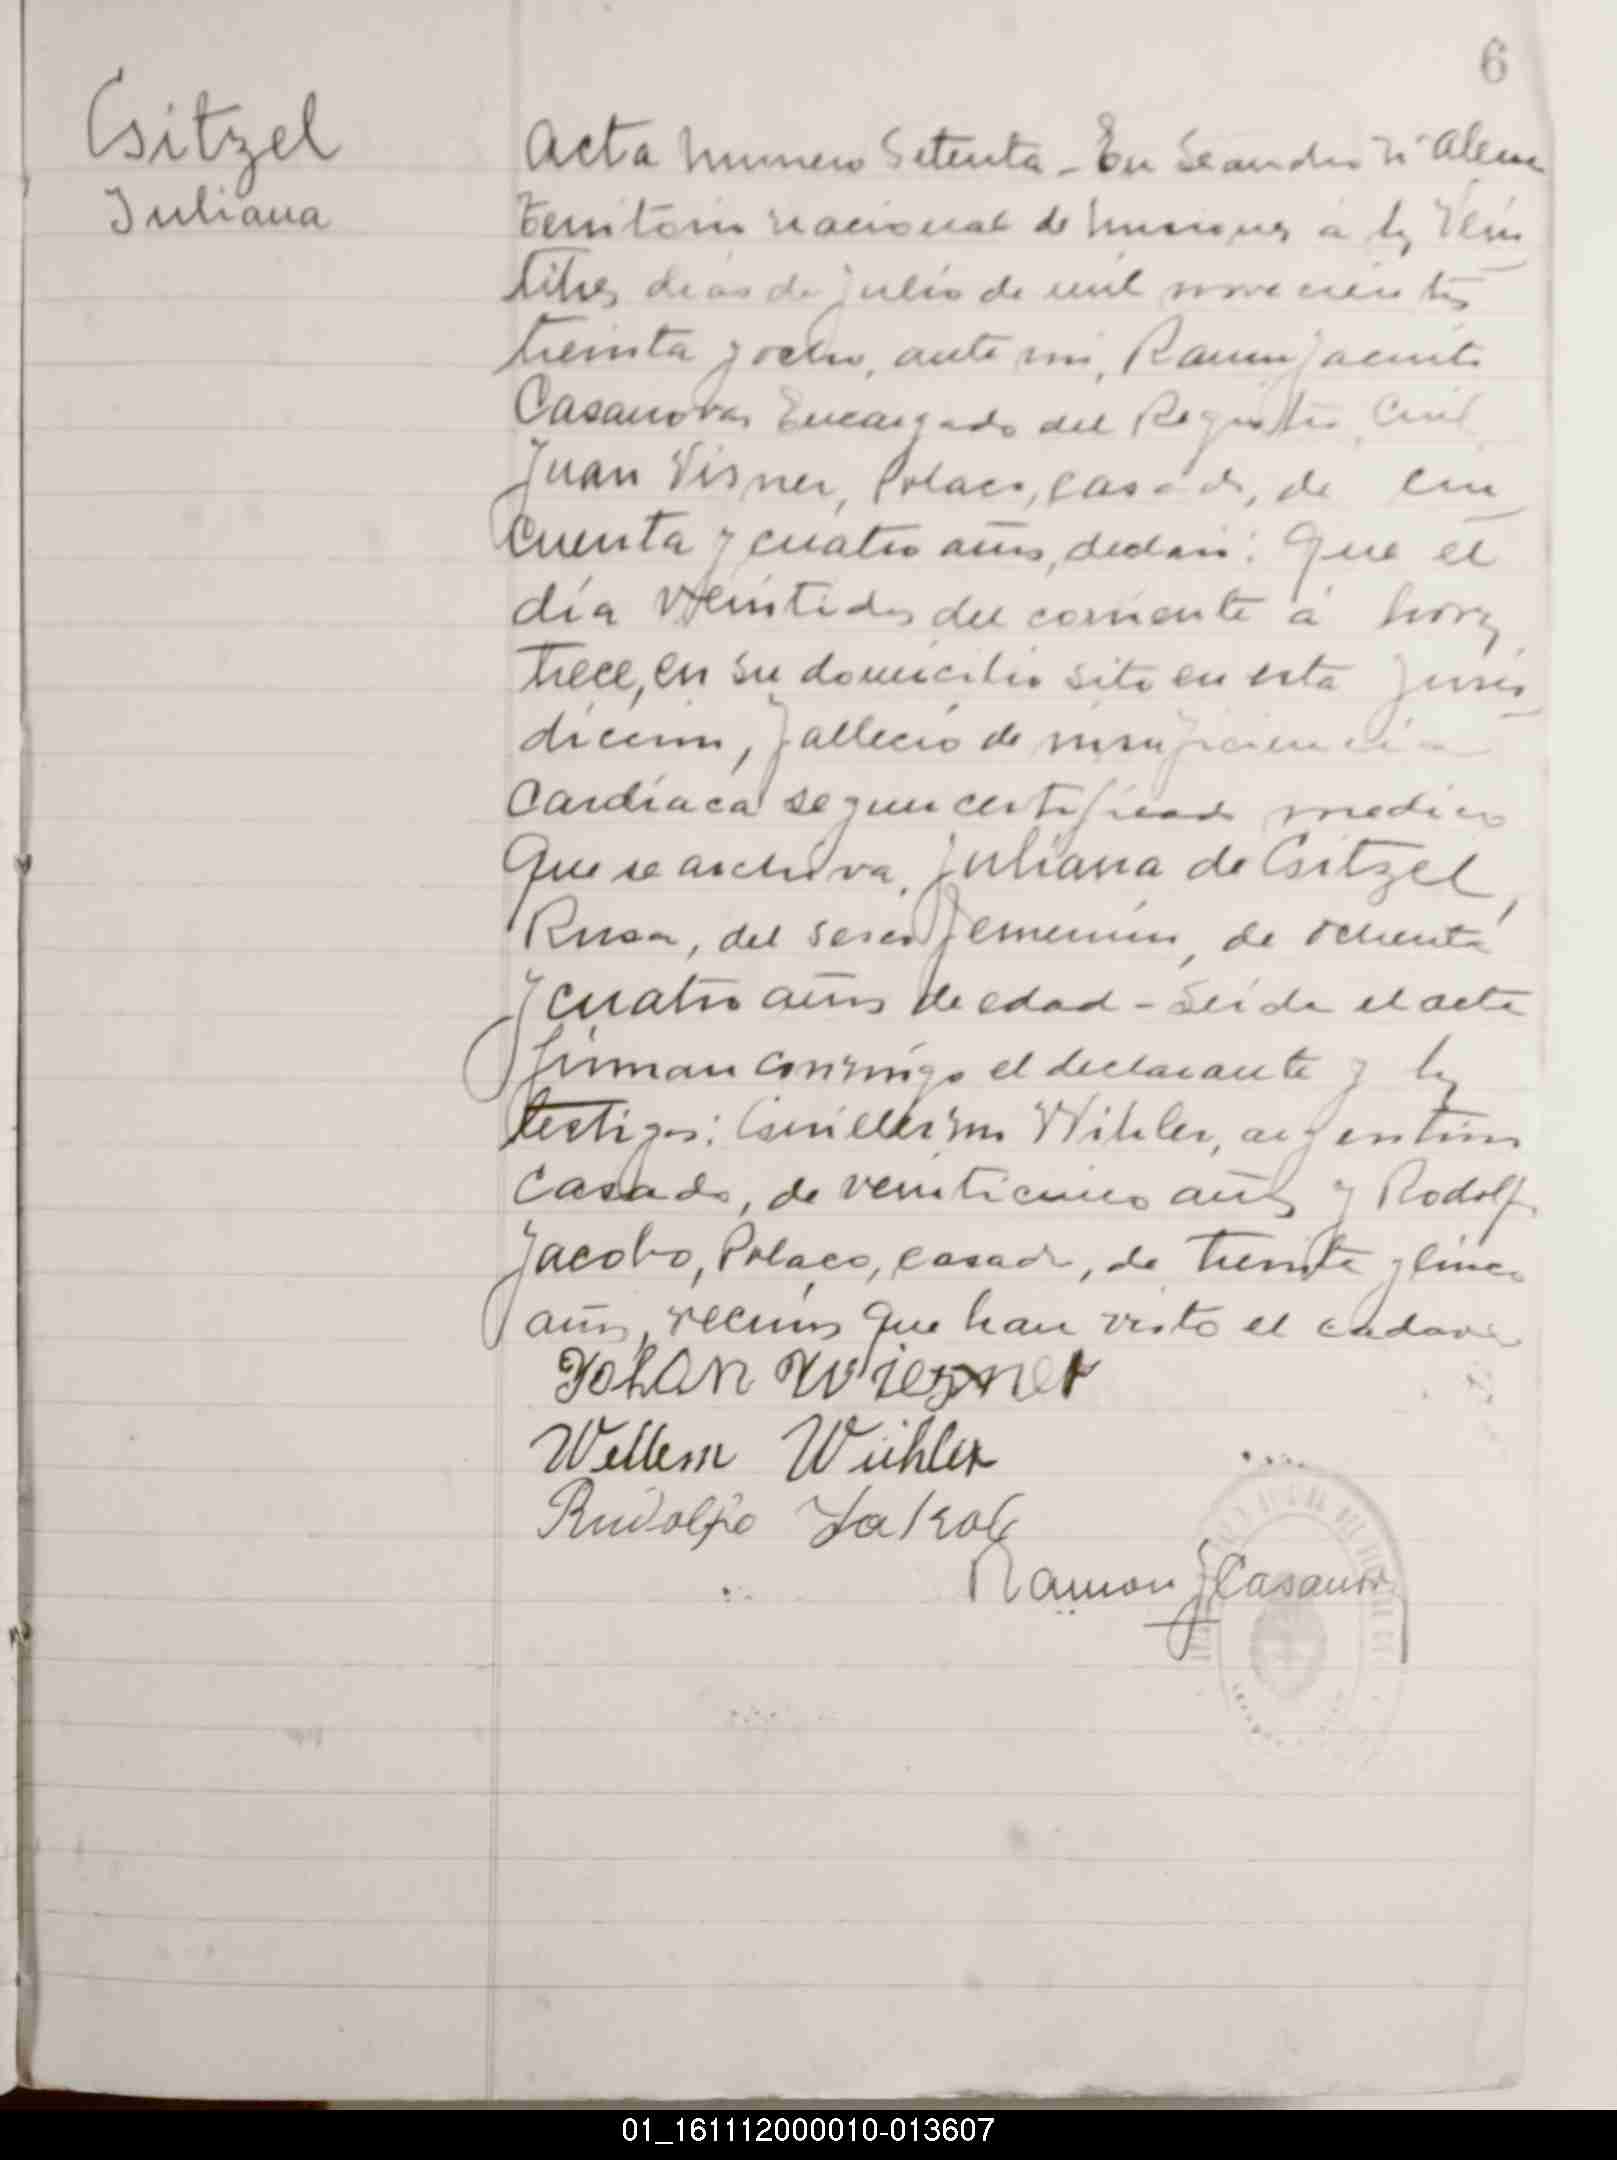 6
Csitzel
Juliana
Acta numero Setenta - En Leandro N. Alem
Territorio nacional de Misiones a los Vein
titres dias de julio de mil novecientos
treinta y ocho, ante mi, Ramon Jacinto
Casanova, Encargado del Registro Civil,
Juan Visner, Polaco, casado, de cin
cuenta y cuatro años, declaró: Que el
día veintidos del corriente á horas
trece, en su domicilio sito en esta juris
diccion, falleció de insuficiencia
Cardíaca segun certificado medico
Que se archiva, Juliana de Csitzel,
Rusa, del sexo femenino, de ochenta
y cuatro años de edad - Leida el acta
firman conmigo el declarante y los
testigos: Guillermo Wihler, argentino
Casado, de veinticinco años y Rodolfo
Jacobo, Polaco, casado, de treinta y cinco
años, vecinos que han visto el cadaver
Johan Wiesner
Wellem Wühler
Rudolfo Jakob
Ramon J Casanova
01_161112000010-013607